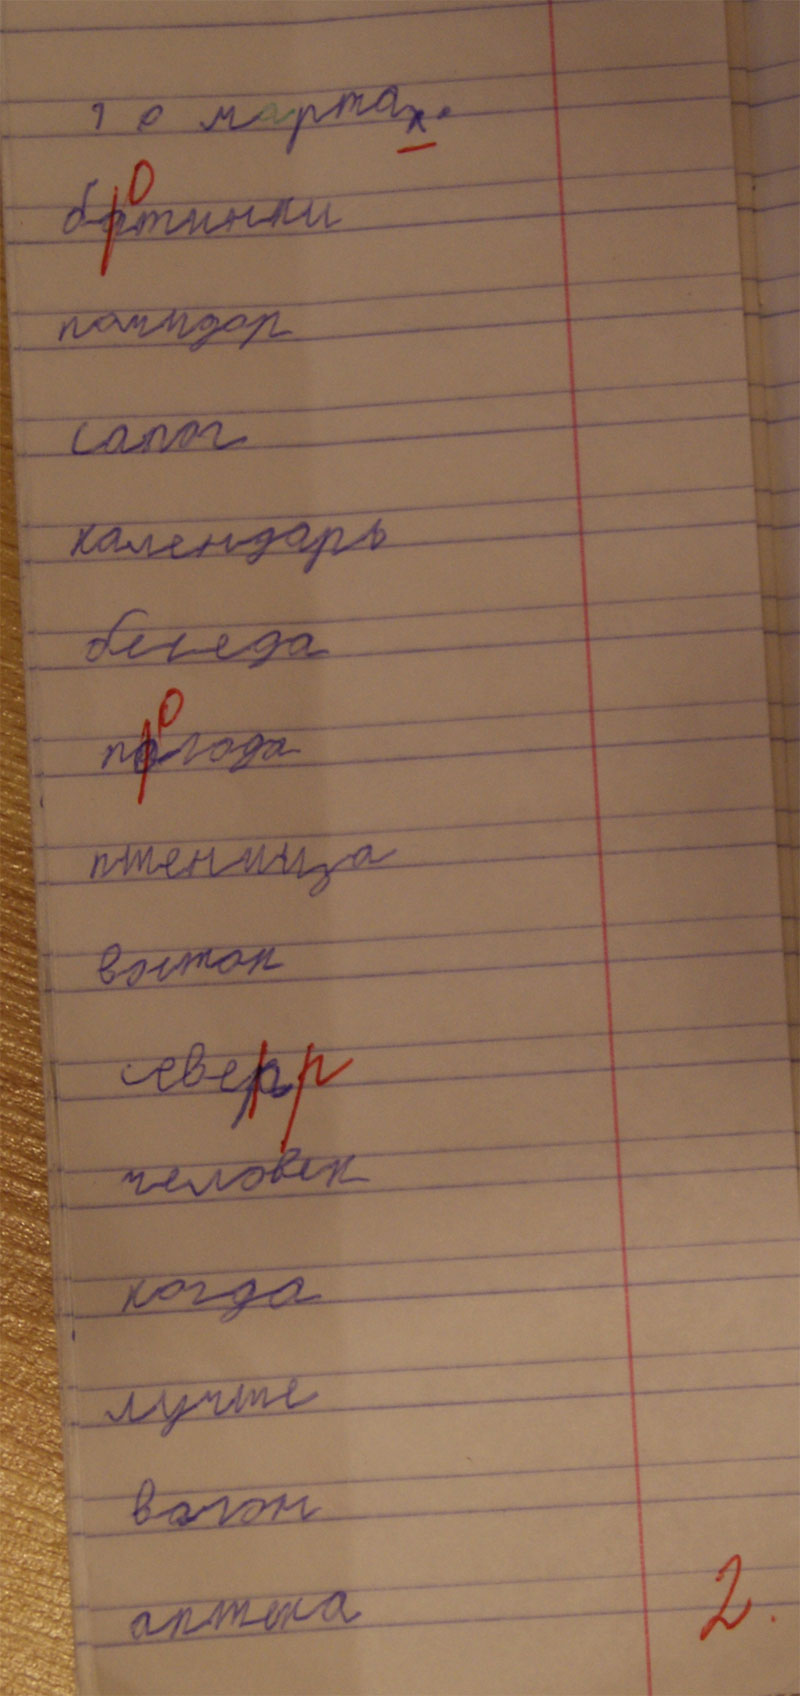 10 марта х.
батинки
о
помидор
сапог
календарь
беседа
пагода
о
пшеница
восток
северр
человек
когда
лучше
вагон
аптека
2.